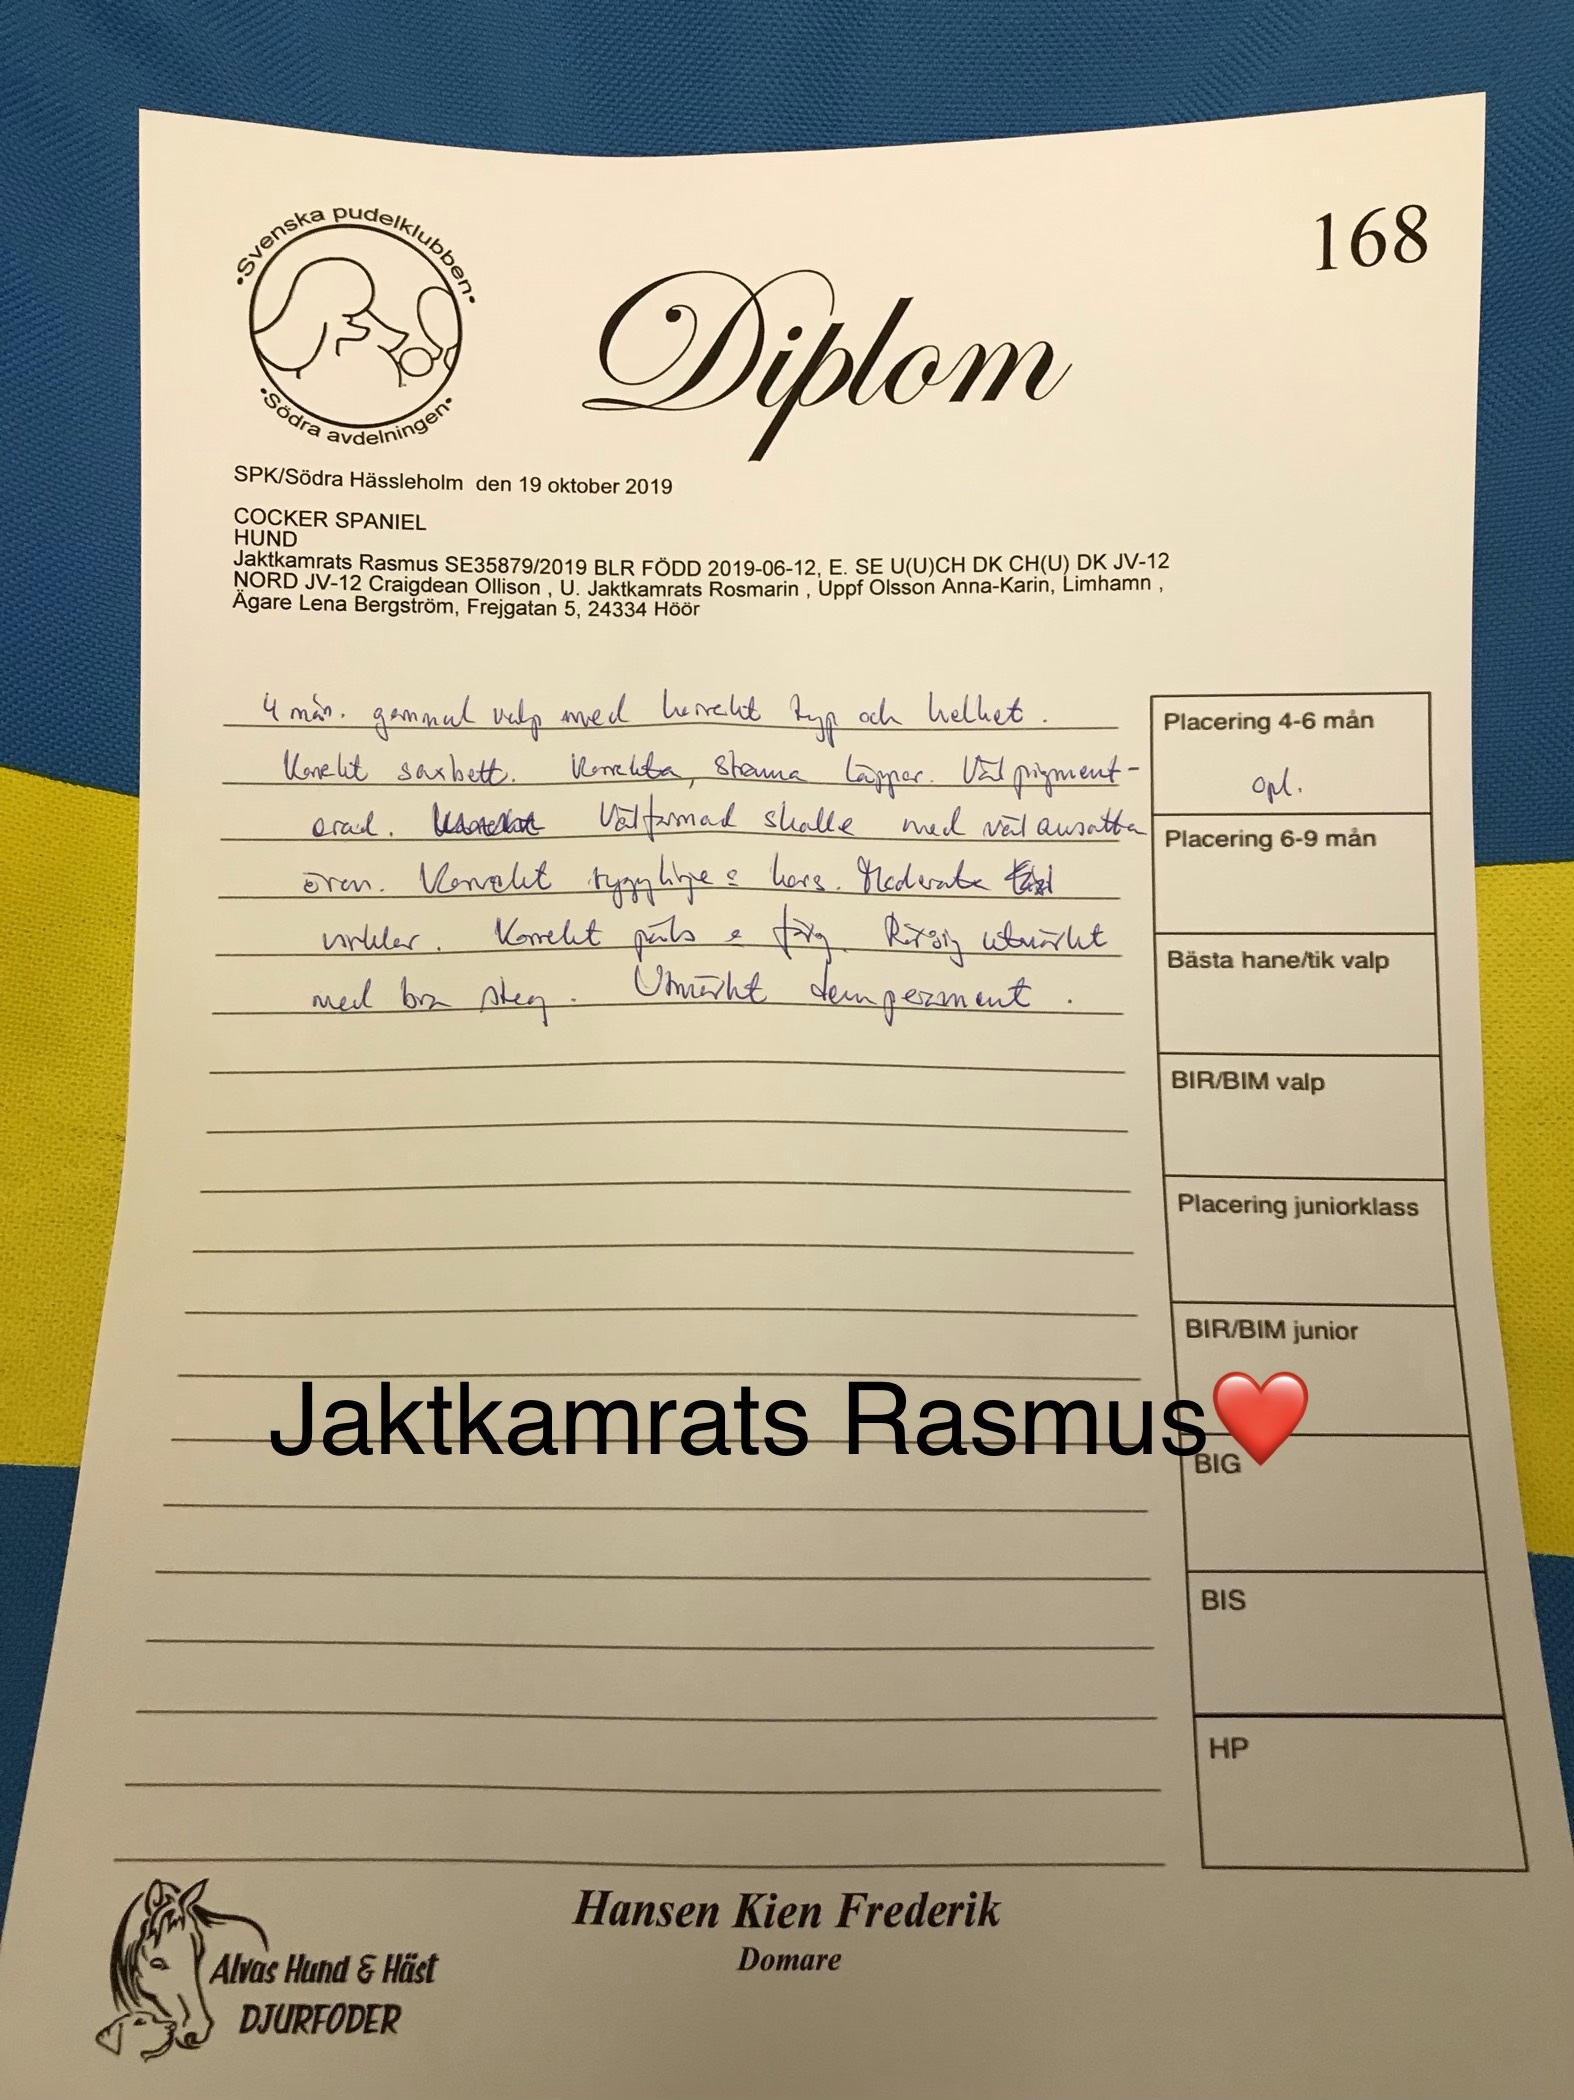 •Svenska pudelklubben•
•Södra avdelningen•
168
Diplom
SPK/Södra Hässleholm den 19 oktober 2019
COCKER SPANIEL
HUND
Jaktkamrats Rasmus SE35879/2019 BLR FÖDD 2019-06-12, E. SE U(U)CH DK CH(U) DK JV-12
NORD JV-12 Craigdean Ollison , U. Jaktkamrats Rosmarin , Uppf Olsson Anna-Karin, Limhamn ,
Ägare Lena Bergström, Frejgatan 5, 24334 Höör
4 mån. gammal valp med korrekt typ och helhet.
Korrekt saxbett. Korrekta, strama läppar. Väl pigment-
erad. Välformad skalle med väl ansatta
ören. Korrekt rygglinje & kors. Moderata
vinklar. Korrekt päls & färg. Rör sig utmärkt
med bra steg. Utmärkt temperament.
Placering 4-6 mån
opl.
Placering 6-9 mån
Bästa hane/tik valp
BIR/BIM valp
Placering juniorklass
BIR/BIM junior
Jaktkamrats Rasmus❤️
BIG
BIS
HP
Hansen Kien Frederik
Domare
Alvas Hund & Häst
DJURFODER